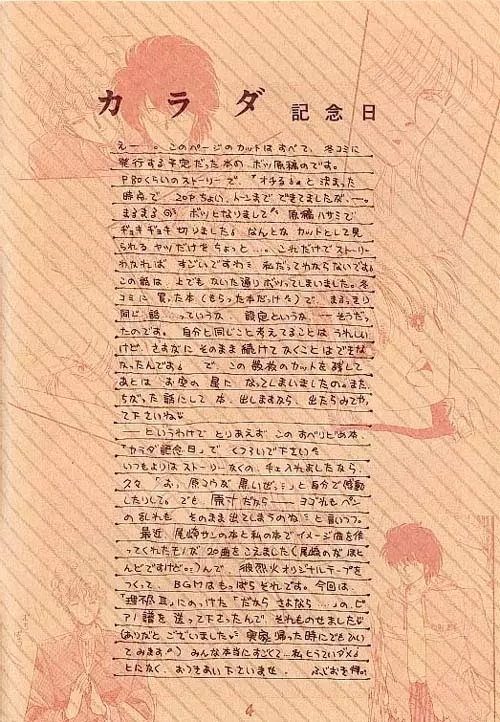 カラダ 記念日
えー 。このページのカットはすべて、冬コミに
発行する予定だった本の、ボツ原稿のです。
P80くらいのストーリーで、「オチる。」と決まった
時点で 20pちょい、トーンまでできてましたが、ー。
まるまる ボツになりまして 原稿ハサミで
ギョキギョキ切りました。なんとなくカットとして見
られるヤツだけをちょっと…。これだけでストーリー
わかれば すごいですわ 私だってわからないです。
この話は、上でもかいた通りボツってしまいました。冬
コミに買った本(もらった本だっけ)で、まるっきり
同じ話 …っていうか、設定というか、ーそうだっ
たのです。自分と同じこと考えてることは うれしい
けど、さすがに そのまま続けてかくことはできな
かったんです。で、この数枚のカットを残して
あとは お空の星に なってしまいましたの。また、
ちがった話にして 本、出しますなら、出たらみてやっ
て下さいね
ーというわけで とりあえず このすべりどめ本、
「カラダ記念日」で くつろいで下さい
いつもよりは ストーリーなくの、チェ入れましたなら、
久々「おっ、原コウが 黒いぜ」と自分で感動
したりして。でも 原汁だからーー ヨゴれもペン
の乱れも そのまま出てしまうのね と言いつつ。
最近、尾崎サンの本と私の本でイメージ曲を作
ってくれたモノが 20曲をこえました(尾崎のがほと
んどですけど)んで、彼烈火オリジナルテープを
つくって、BGMはもっぱらそれです。今回は、
「理不尽Ⅱ」にのっけた「だから さよなら …」の、ピ
アノ譜を 送って下さったんで それものせました
(ありがとございました 実家帰った時にでもひい
てみます)みんな本当にすごくて…私とうていダメ
とにかく、おつきあい下さいませ。
4